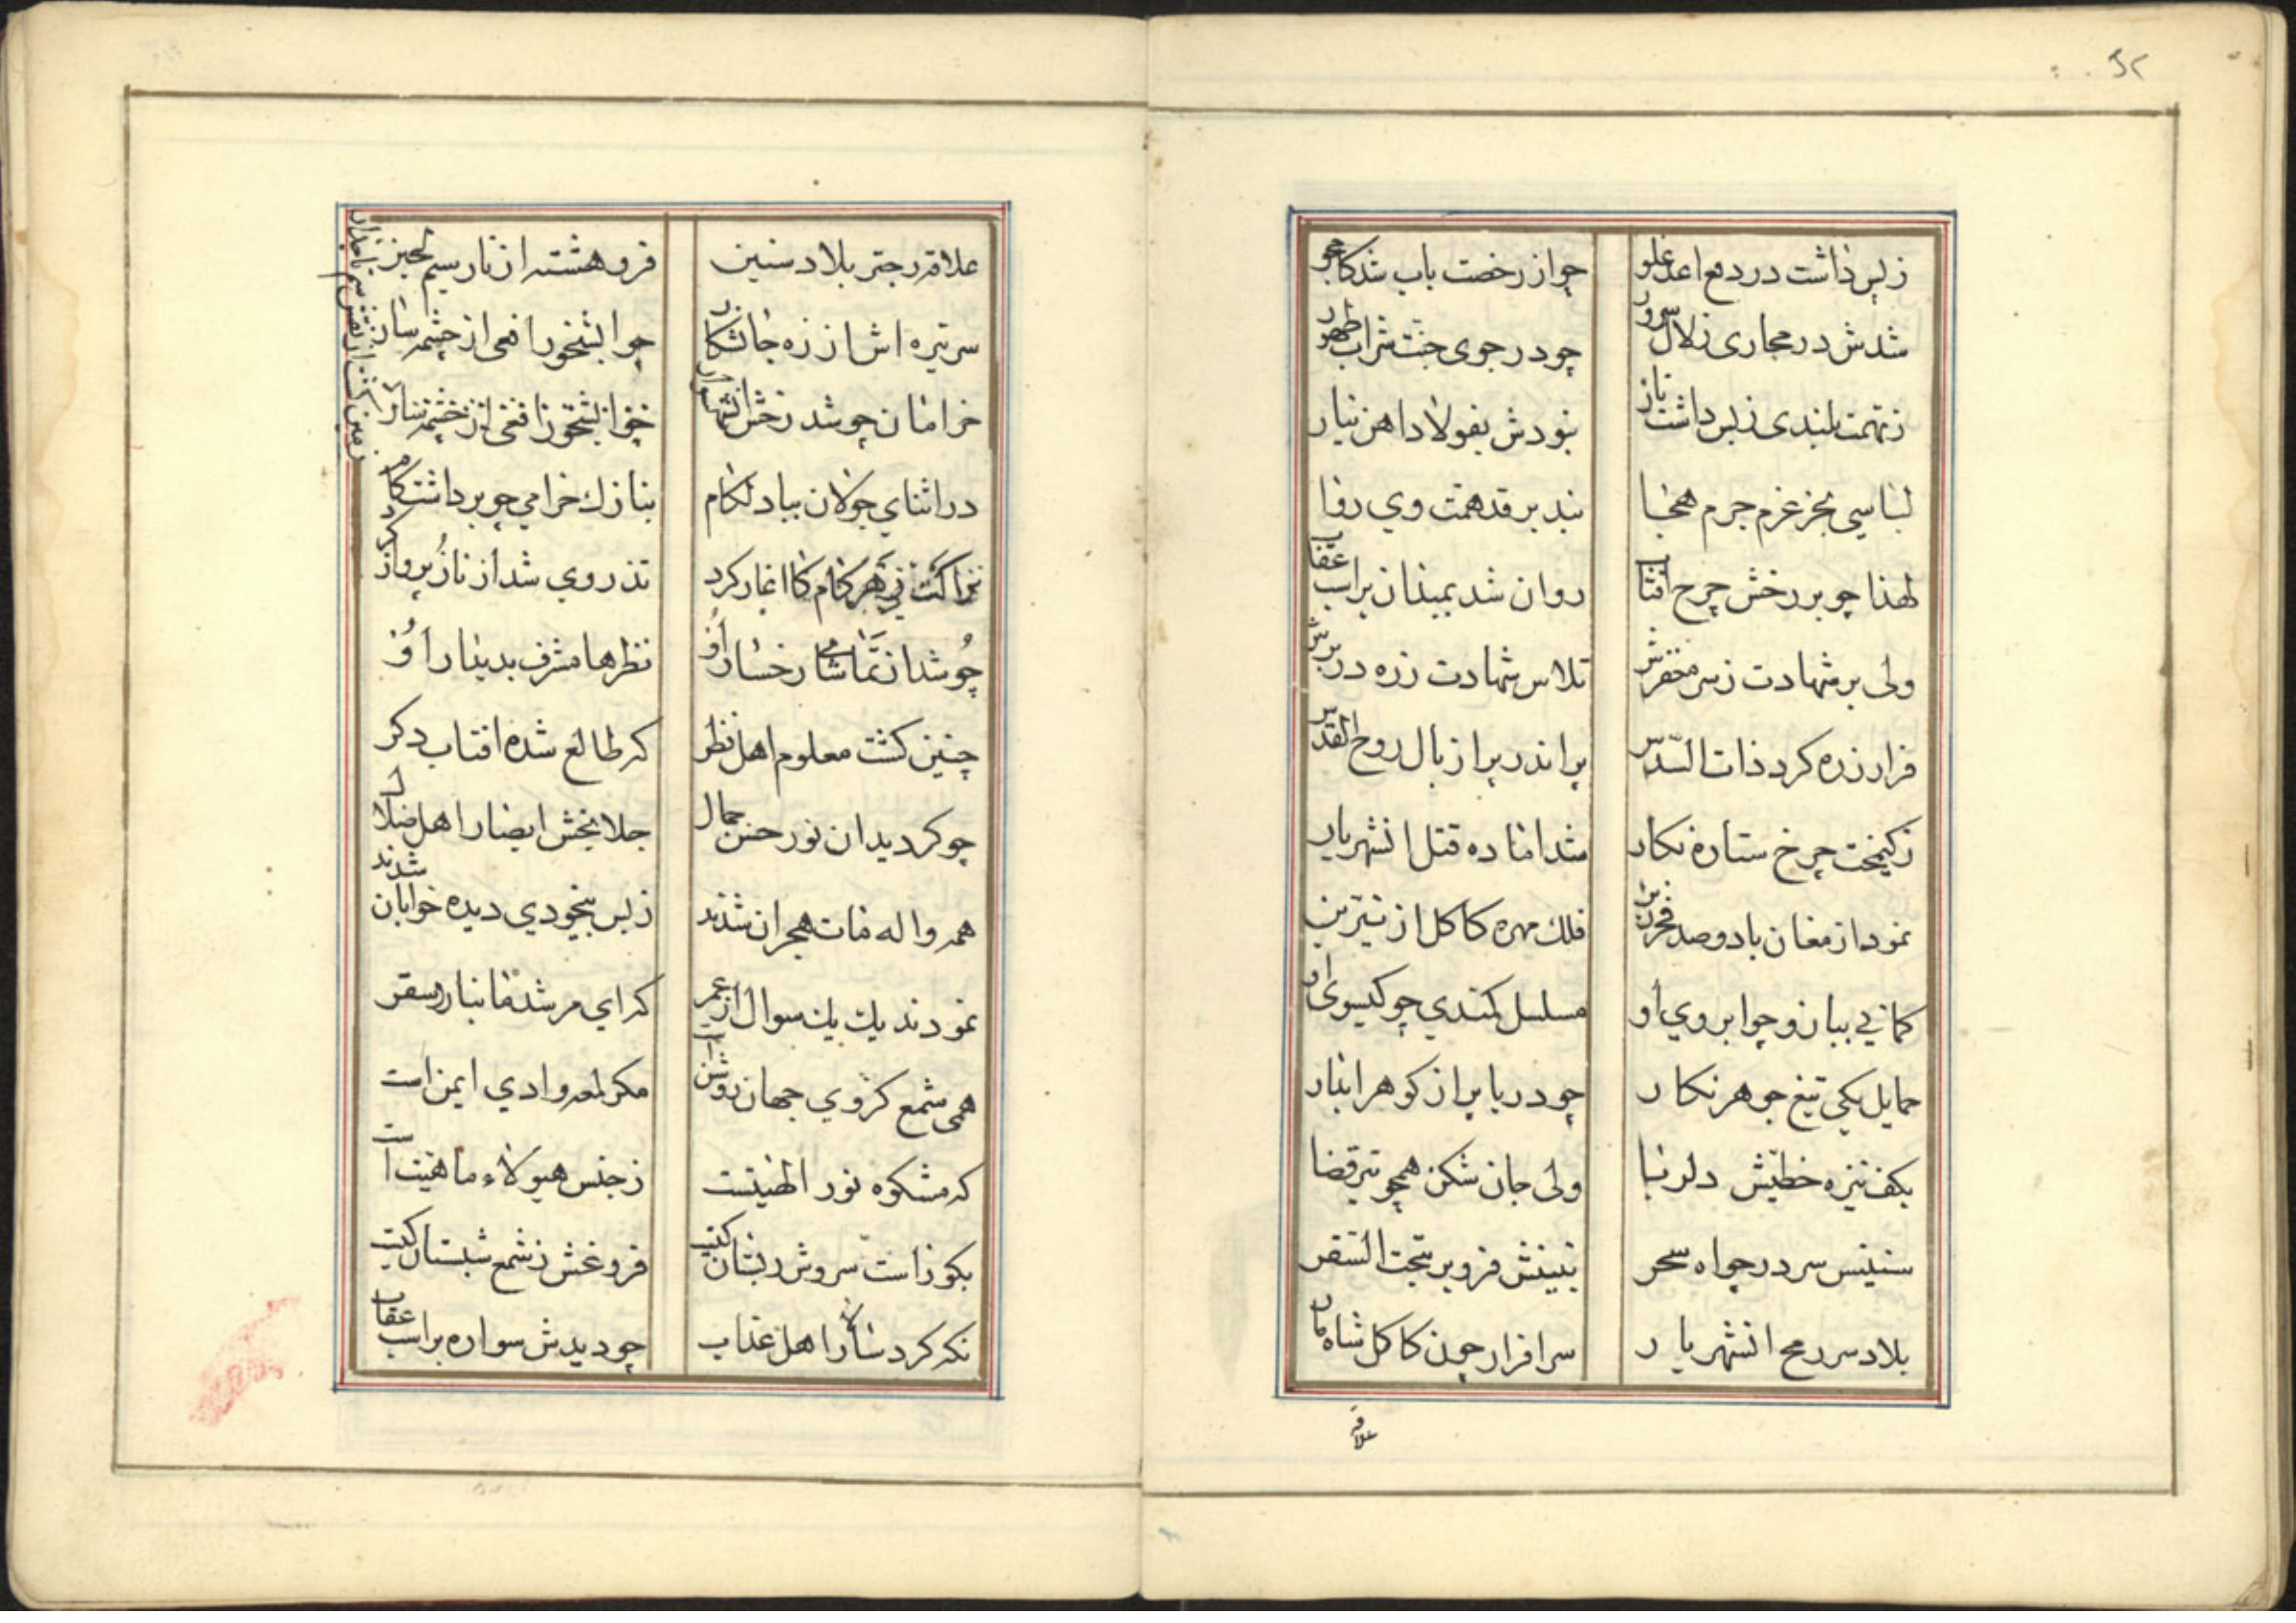 زبس داشت در دفع اعدا غلو
چو از رخصت باب شد کامجو
شدش در مجاری زلال سرور
چو در جوی جنت شراب طهور
ز همت بلندی زبس داشت ناز
نبودش بفولاد و اهن نیاز
لباسی بجز عزم جرم
نبد بر قد همت وی روا
لهذا چو بر رخش چرخ افتاب
روان شد بمیدان براسب عقاب
ولی بر شهادت ز سر مغفرش
تلاس شهادت زره در برش
قرار زره کرد ذات السدس
براندر برا ز بال روح القدس
ز کیمخت چرخ ستاره نکار
شد اماده قتل انشهریار
نمود ارمغان با دو صد فخر زین
فلک مهره کاکل از نیرین
کمانی ببازو چو ابروی او
مسلسل کمندی چو کیسوی او
حمایل یکی تیغ جوهر نکار
چو دریا پر از کوهر ابدار
بکف نیزه خطیش دلربا
ولی جان شکن همچو تیر قضا
سنینش سر در چو اه سحر
نبینش فرو بر بتحت السقر
بلاد سر رمح انشهریار
سرافراز چون کاکل شاه
علاقه
علاقه رجتر بلاد سنین
فروهشته از تار سیم لجین
سر نیزه اش از زره جانشکار
چو ابشخور افعی از چشمه سار
خرامان چو شد رخش انشهسوار
زمین کشت از نقش سم تاجدار
در اثنای جولان بباد لکام
بنازک خرامی چو برداشت کام
نزاکت نی هر کام کا اغاز کرد
تذروی شد از ناز پرواز کرد
چو شد از تماشای رخسار او
نظرها مشرف بدیدار او
چنین کشت معلوم اهل نظر
که طالع شده افتاب دکر
چو کردید ان نور حسن جمال
جلا بخش ابصار اهل ضلال
همه واله مات هجران شدند
زبس بیخودی دیده خوابان شدند
نمودند یک یک سوال از عمر
که ای مرشد ما بنار سقر
همی شمع کز وی جهان روشن است
مکر لمعه وادی ایمن است
که مشکوه نور الهیتست
ز جنس هیولاء ماهیت است
بکو ذات سروش دبستان کیست
فروغش ز شمع شبستان کیست
نکه کرد سالار اهل عذاب
چو دیدش سواره براسب عقاب